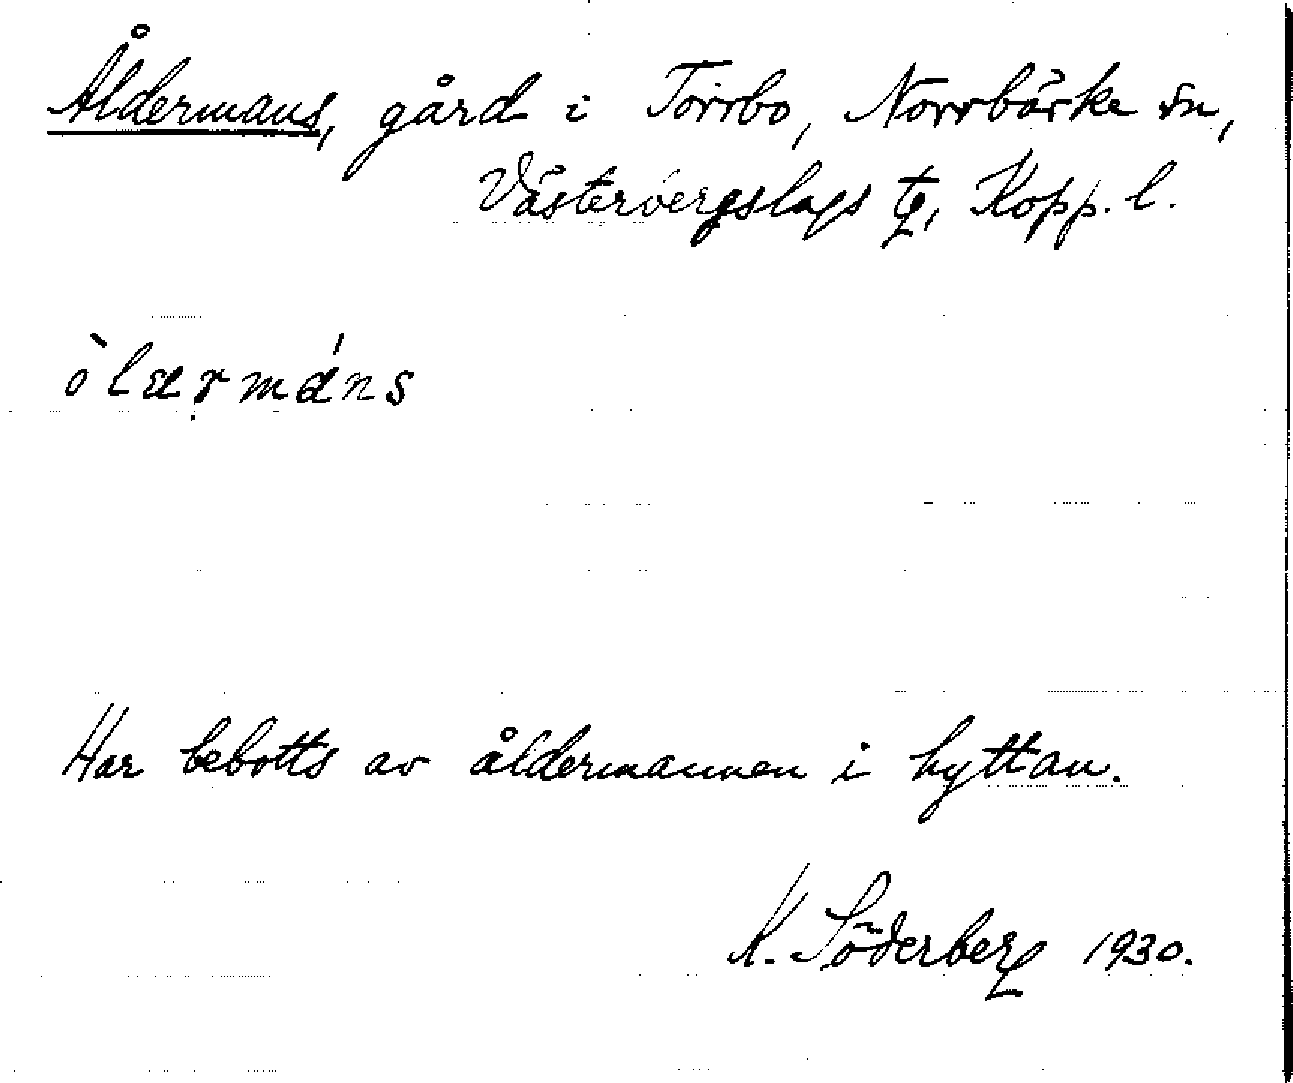 Åldermans, gård i Torrbo, Norrbärke sn,
Västerbergslags tg, Kopp. l.
òlærmáns
Har bebotts av åldermannen i hyttan.
K. Söderberg 1930.